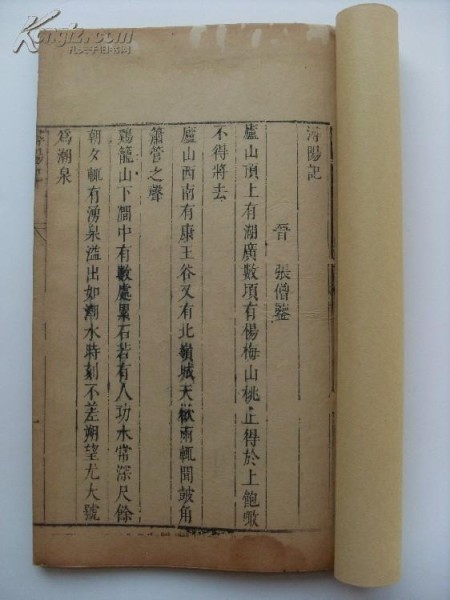 潯陽記
晉 張僧鑒
廬山頂上有湖廣數頃有楊梅山桃止得於上飽噉
不得將去
廬山西南有康王谷又有北嶺城天欲雨輒聞鼓角
簫管之聲
鷄龍山下澗中有數處累石若有人功水常深尺餘
朝夕輒有湧泉溢出如潮水時刻不差朔望尤大號
爲潮泉
Kongfz.com
孔夫子旧书网